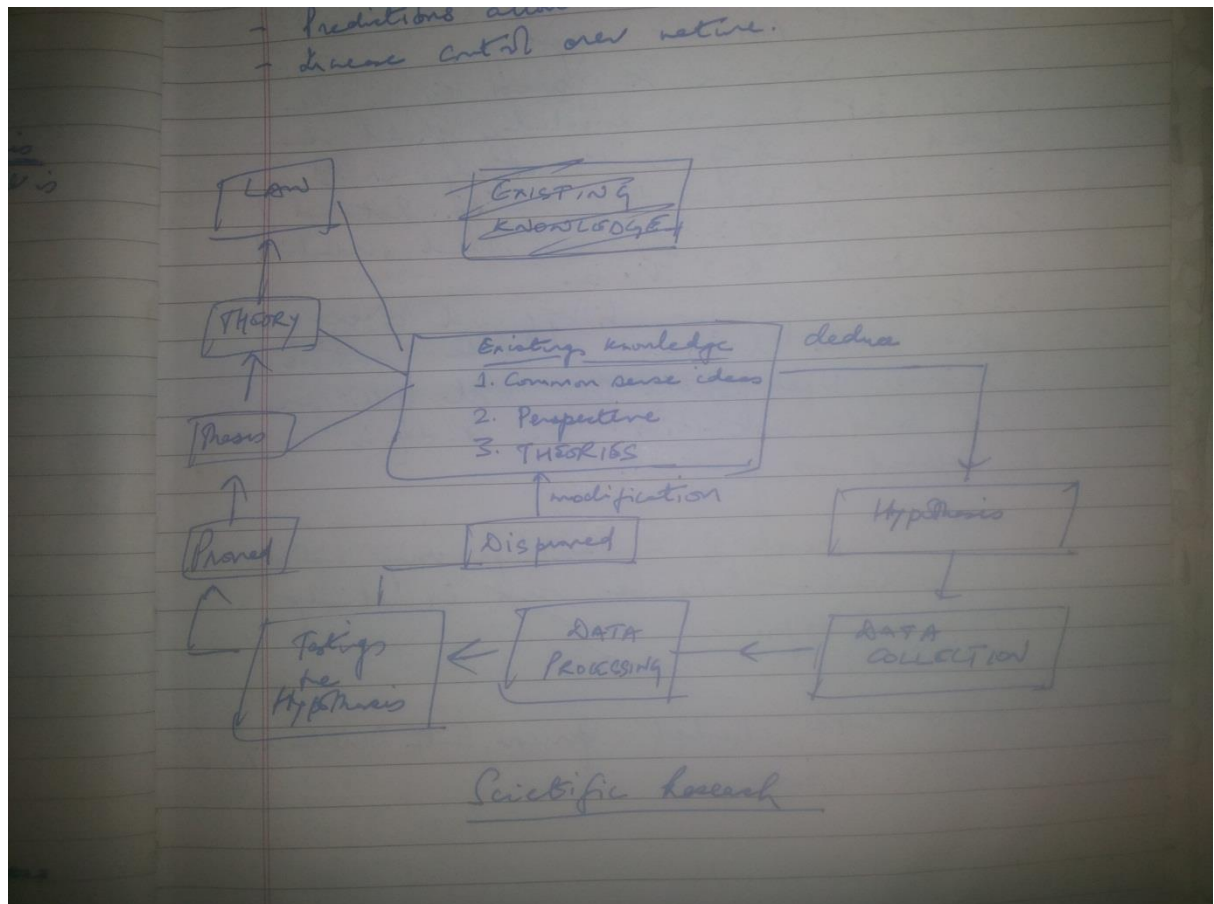 - Predictions allow
- Increase control over nature.
is
is
LAW
EXISTING
KNOWLEDGE
THEORY
Existings knowledge
1. Common sense ideas
2. Perspective
3. THEORIES
deduce
Thesis
modification
Hypothesis
Proved
Disproved
Testings
the
Hypothesis
DATA
PROCESSING
DATA
COLLECTION
Scientific Research